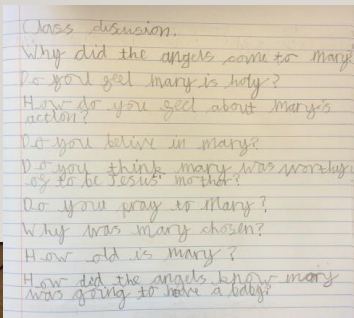 Class discusion.
Why did the angels come to Mary?
Do you feel mary is holy?
How do you feel about mary's
action?
Do you belive in mary?
Do you think mary was worthy
of to be Jesus' mother?
Do you pray to Mary?
Why was mary chosen?
How old is mary?
How did the angels know mary
was going to have a baby?